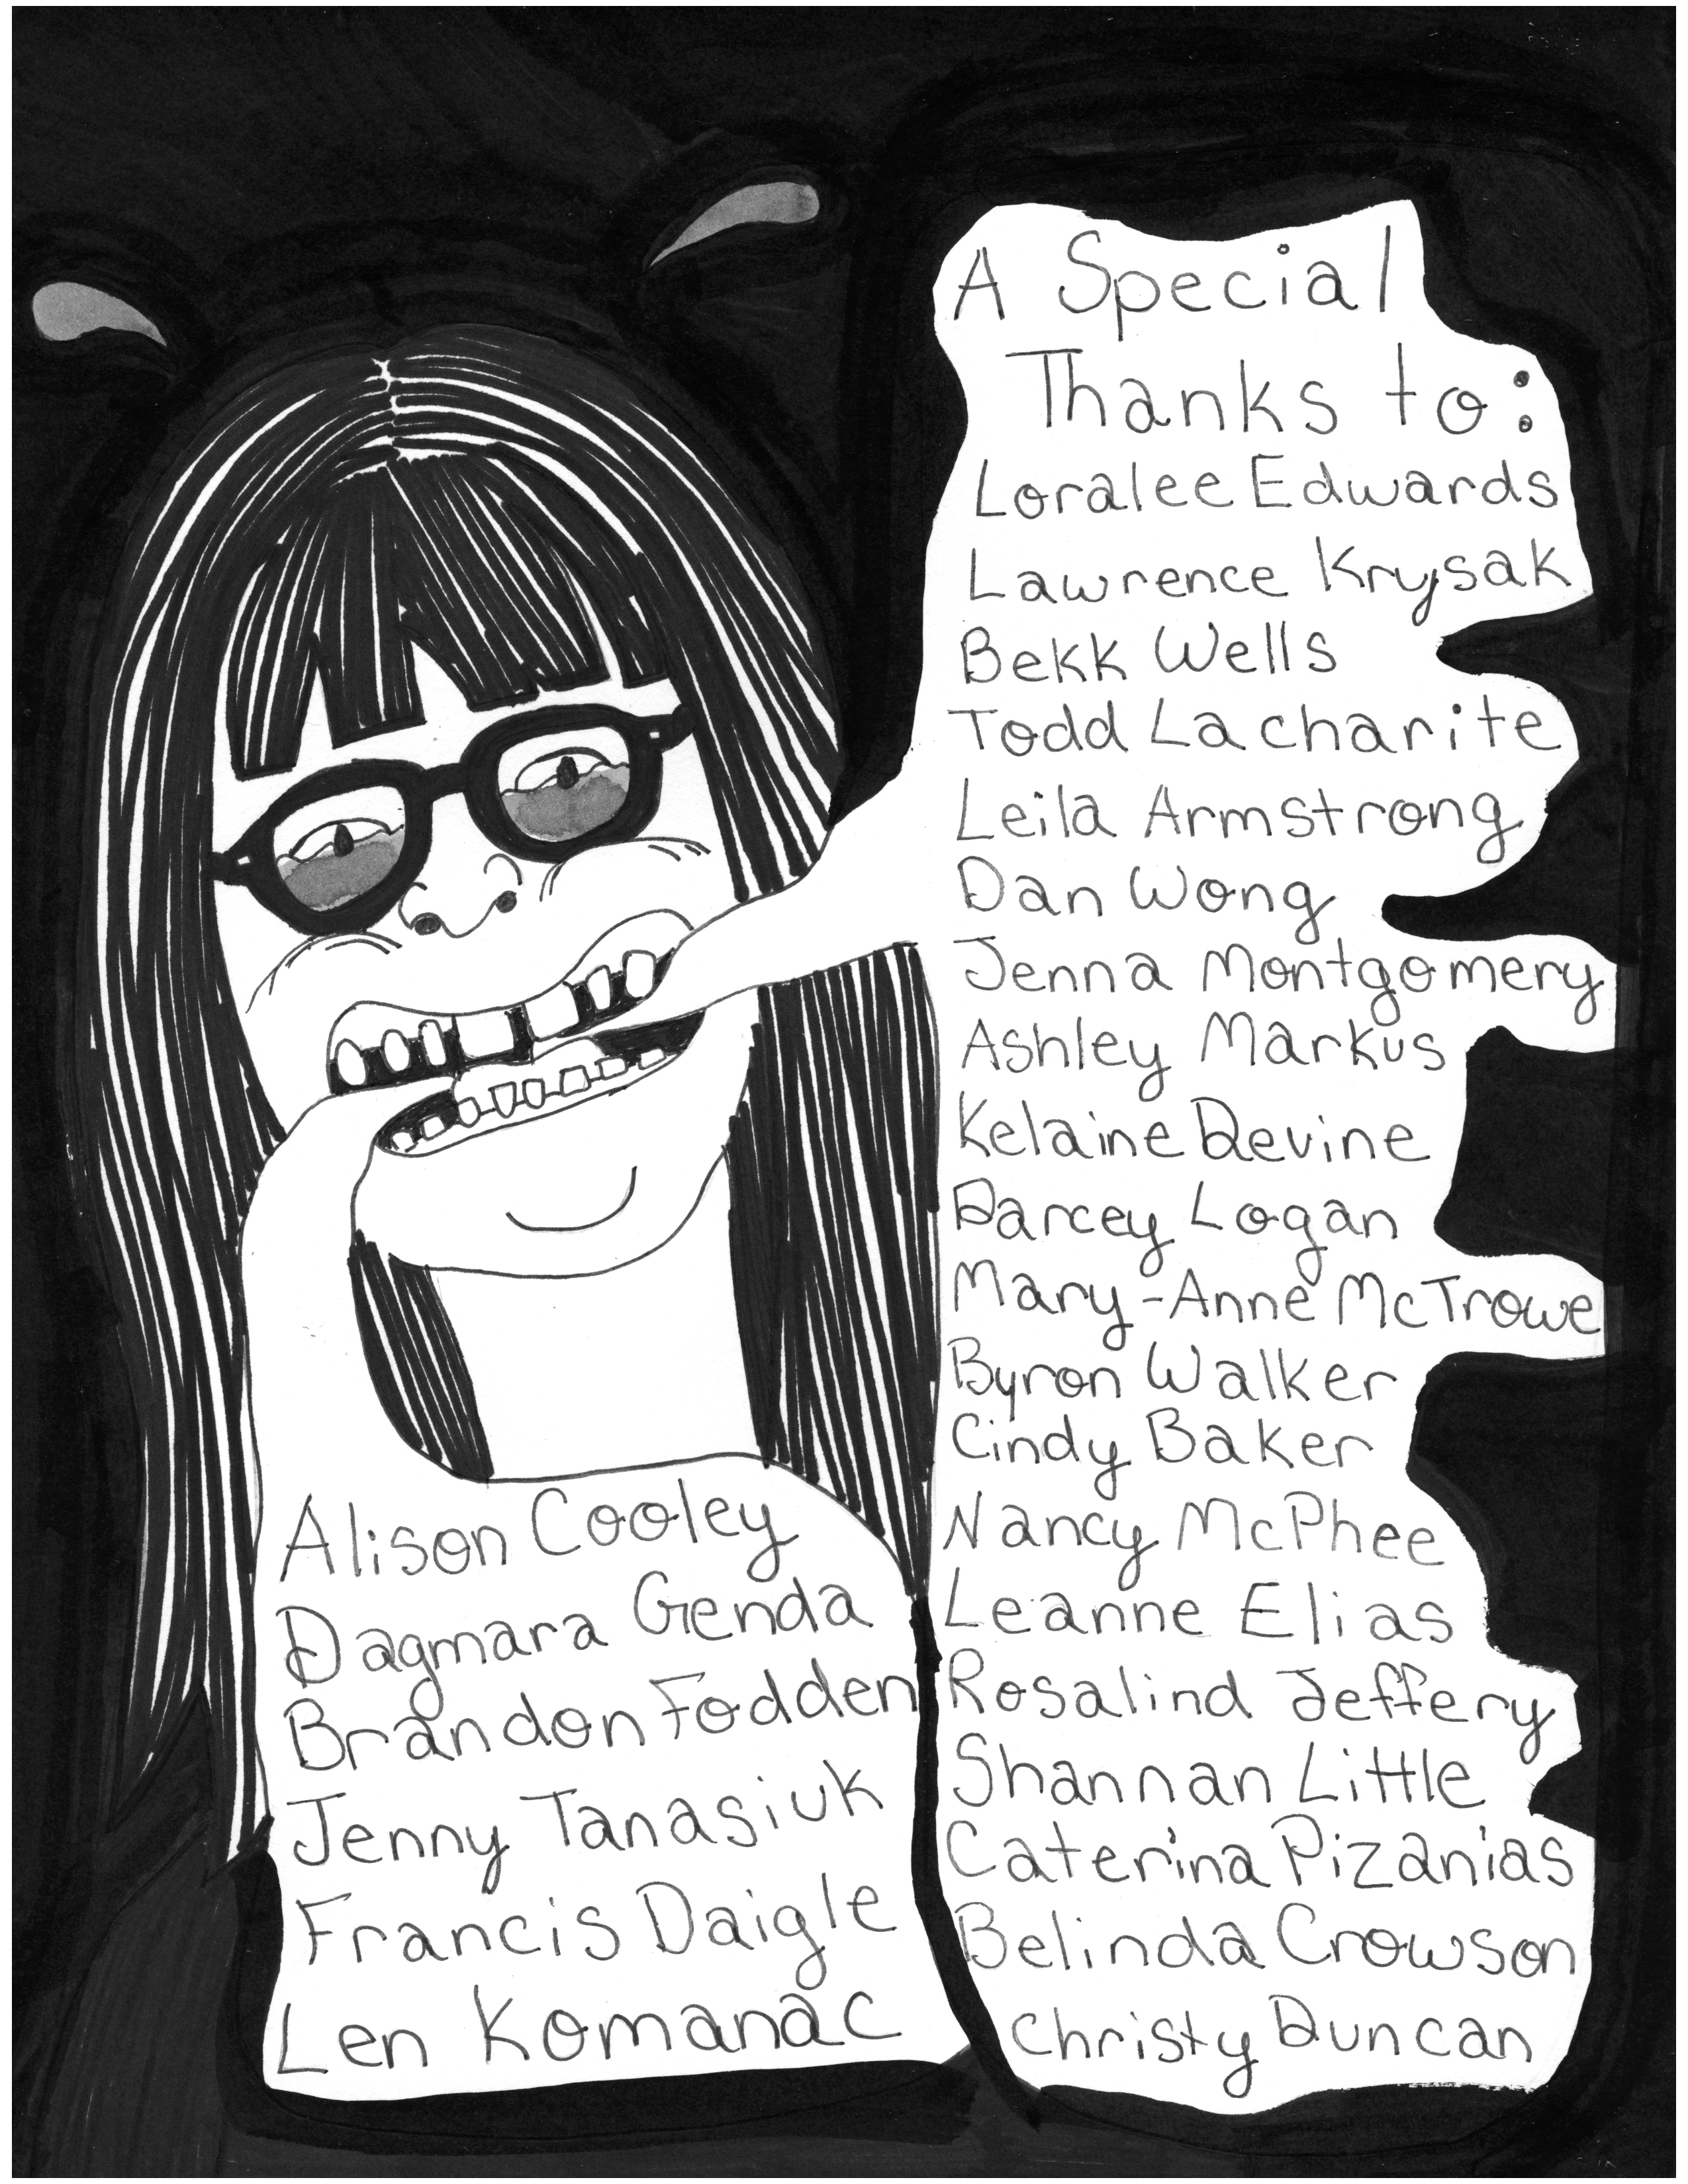 A Special
Thanks to:
Loralee Edwards
Lawrence Krysak
Bekk Wells
Todd Lacharite
Leila Armstrong
Dan Wong
Jenna Montgomery
Ashley Markus
Kelaine Devine
Darcey Logan
Mary-Anne McTrowe
Byron Walker
Cindy Baker
Nancy McPhee
Leanne Elias
Rosalind Jeffery
Shannan Little
Caterina Pizanias
Belinda Crowson
Christy Duncan
Alison Cooley
Dagmara Genda
Brandon Fodden
Jenny Tanasiuk
Francis Daigle
Len Komanac